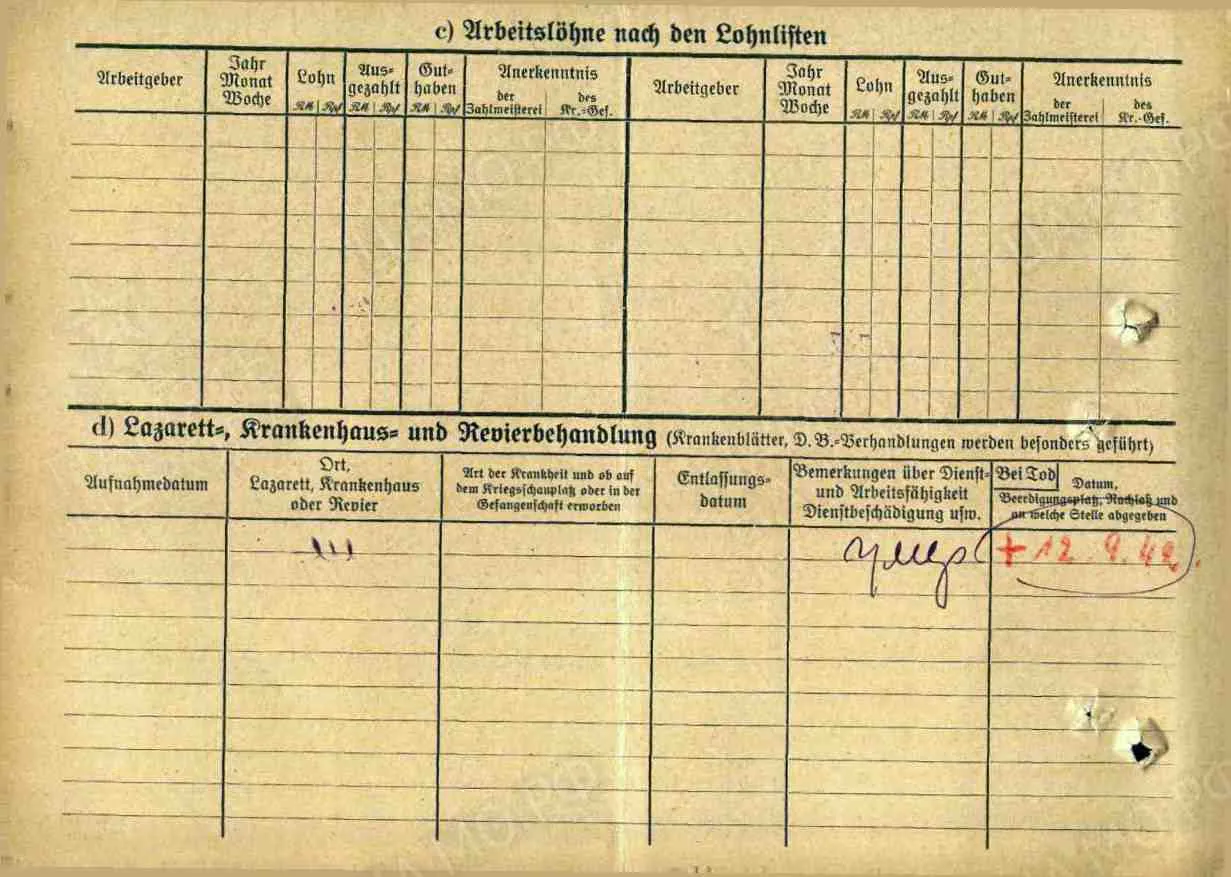 c) Arbeitslöhne nach den Lohnlisten
Arbeitgeber
Jahr
Monat
Woche
Lohn
RM Rpf
Aus-
gezahlt
RM Rpf
Gut-
haben
RM Rpf
Anerkenntnis
der
Zahlmeisterei
des
Kr.-Gef.
Arbeitgeber
Jahr
Monat
Woche
Lohn
RM Rpf
Aus-
gezahlt
RM Rpf
Gut-
haben
RM Rpf
Anerkenntnis
der
Zahlmeisterei
des
Kr.-Gef.
d) Lazarett-, Krankenhaus- und Revierbehandlung (Krankenblätter, D. B.-Verhandlungen werden besonders geführt)
Aufnahmedatum
Ort,
Lazarett, Krankenhaus
oder Revier
Art der Krankheit und ob auf
dem Kriegsschauplatz oder in der
Gefangenschaft erworben
Entlassungs-
datum
Bemerkungen über Dienst-
und Arbeitsfähigkeit
Dienstbeschädigung usw.
Bei Tod Datum,
Beerdigungsplatz, Nachlaß und
an welche Stelle abgegeben
умер
+ 12. 9. 42.